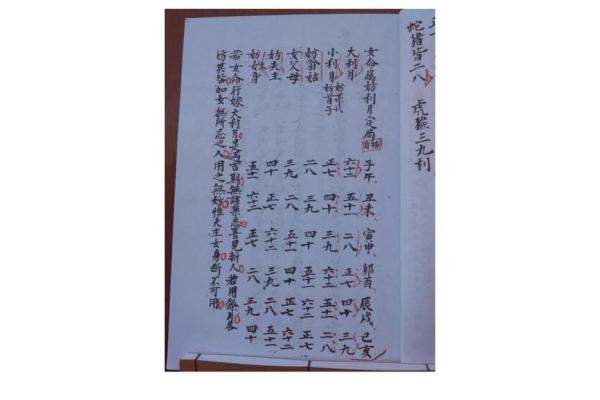 蛇猪皆二八
虎猴三九利
女命属妨利月定局
子午 丑未 寅申 卯酉 辰戌 巳亥
大利月 六十二 五十一 二八 正七 四十 三九
小利月 妨首子 正七 四十 三九 五十一 六十二 二八
妨翁姑 二八 三九 四十 五十一 六十二 正七
女父母 三九 二八 五十一 四十 正七 六十二
妨夫主 四十 正七 六十二 三九 二八 五十一
妨女身 五十一 六十二 正七 二八 三九 四十
若女命行嫁大利月是為吉期無諸禁忌喜見新人若用餘月各
妨其如女無所忌之人用之無妨惟夫主女身断不可用